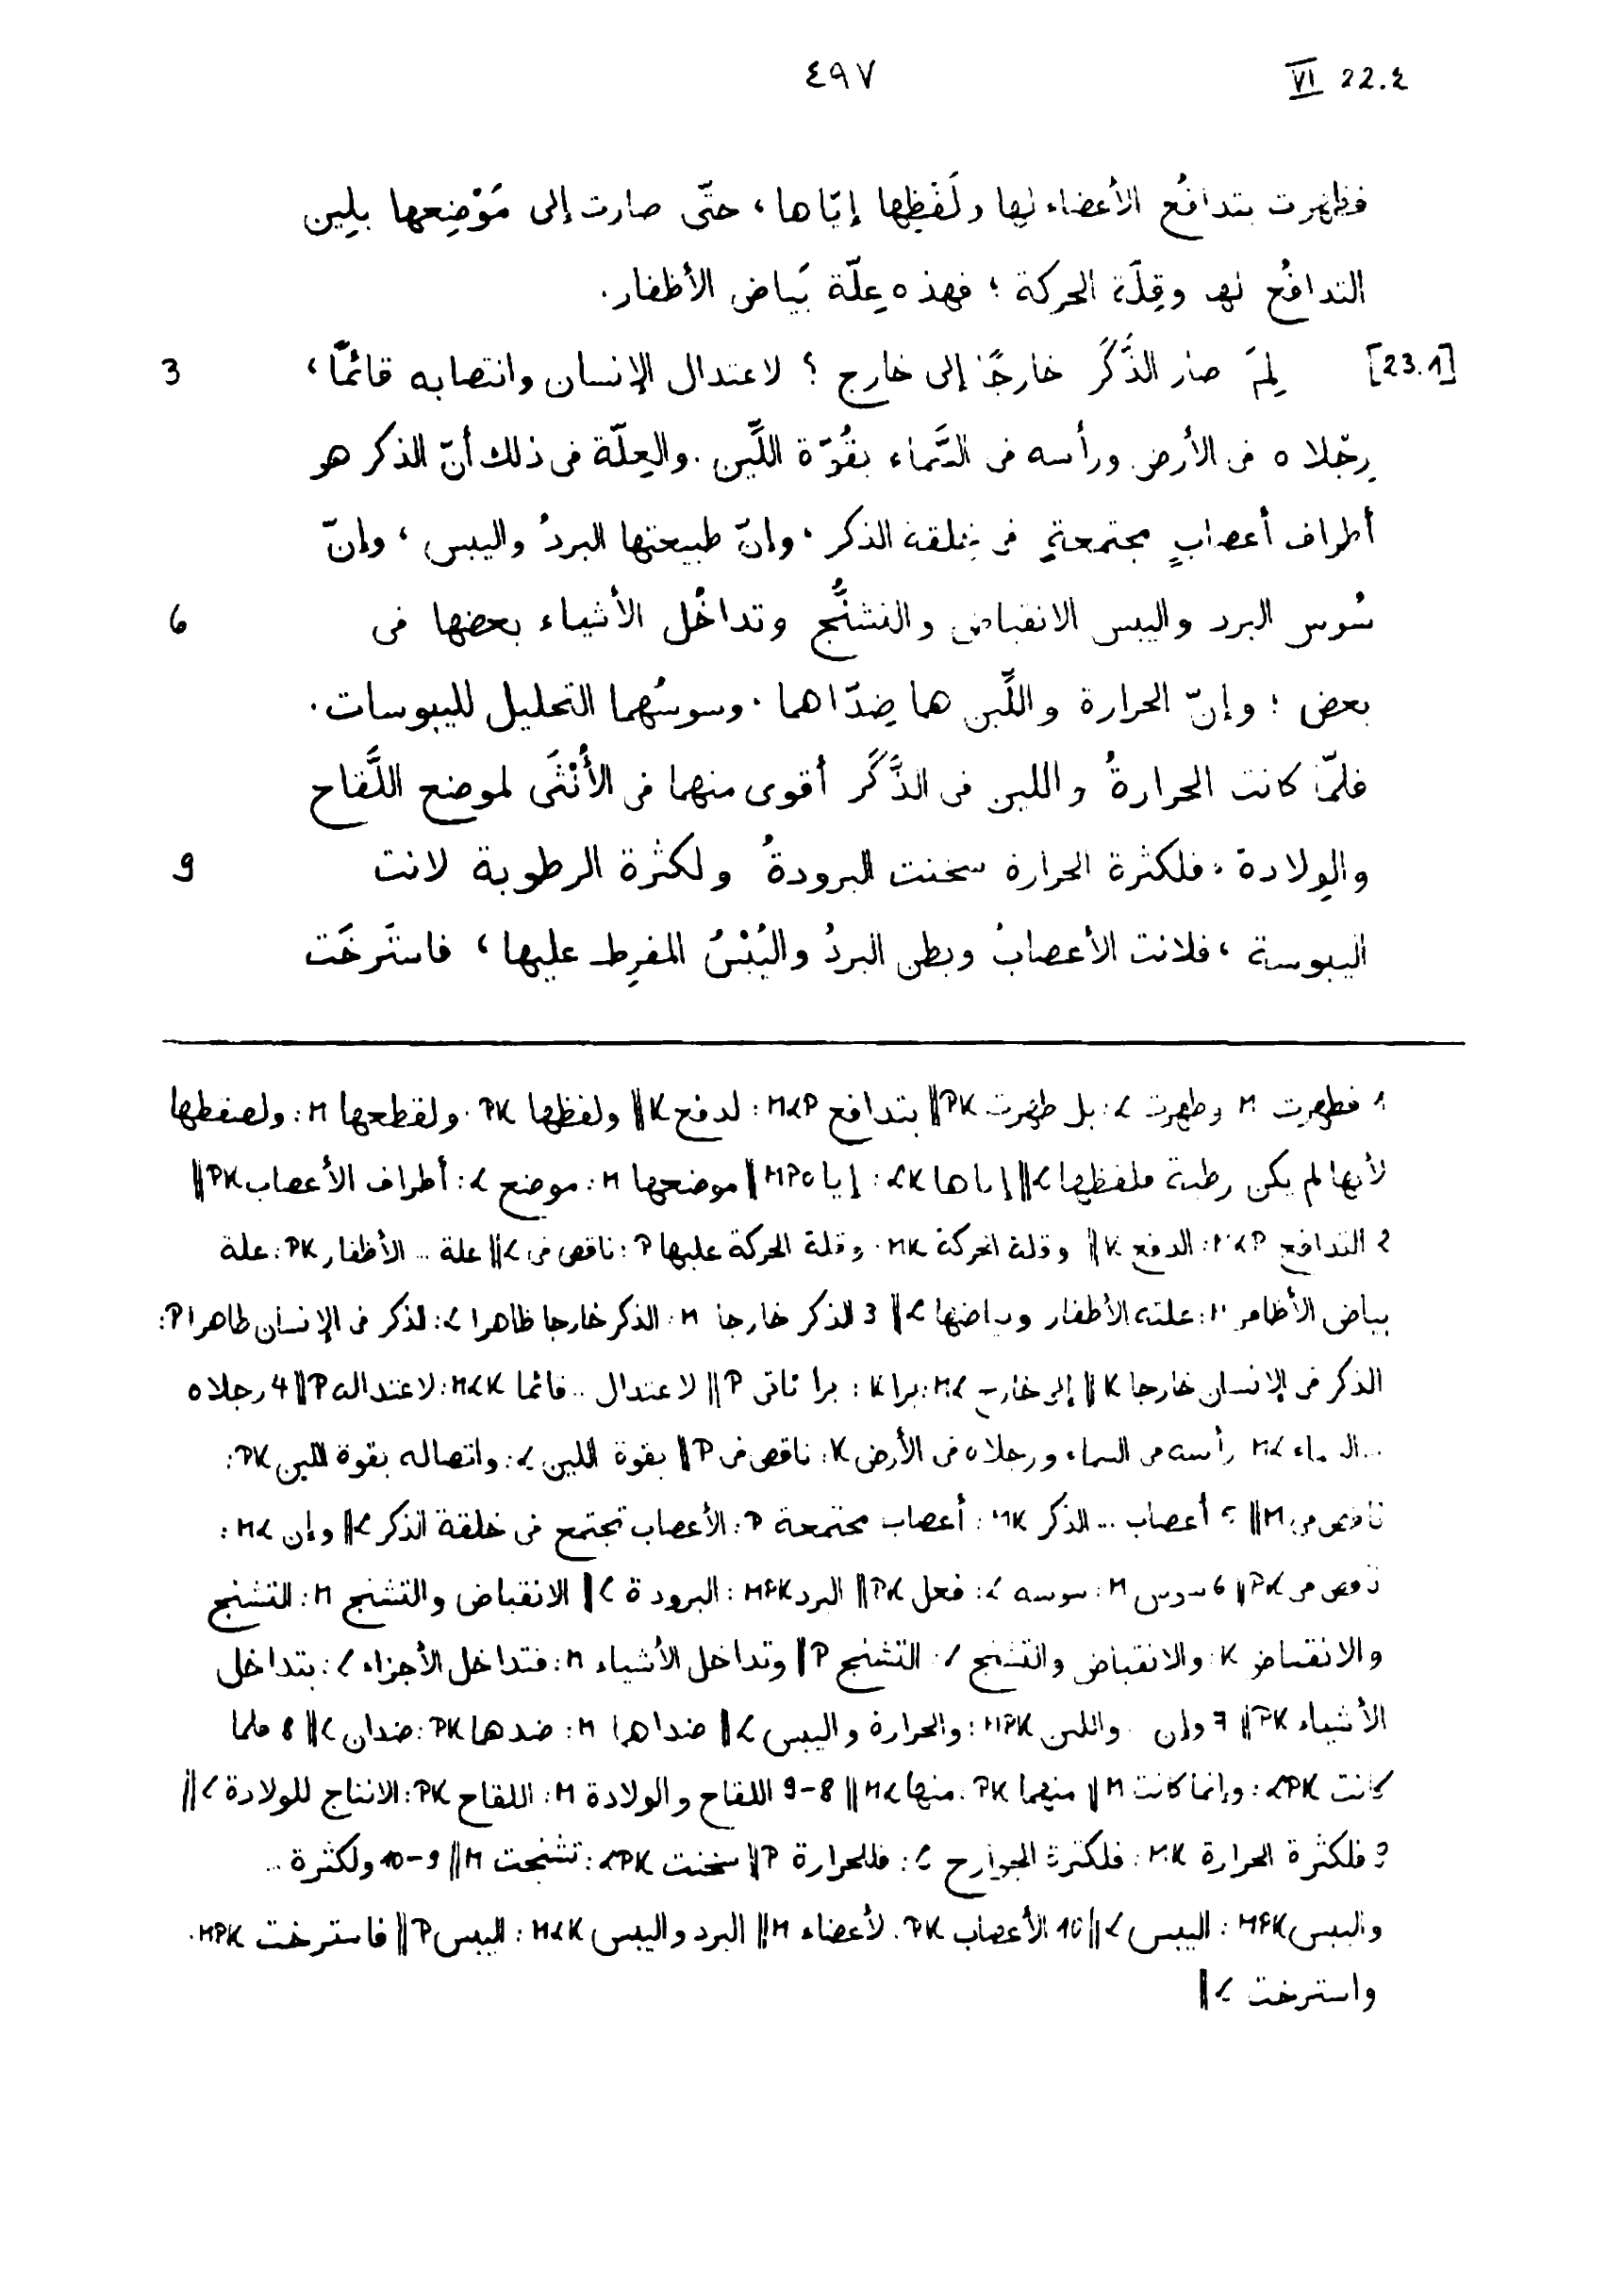 ٤٩٧ VI 22.2
فظهرت بتدافُع الأعضاء لها ولَفْظِها إيّاها، حتّى صارت إلى مَوْضِعها بلِين
التدافُع لها وقِلّة الحركة؛ فهذه عِلّة بَياض الأظفار.
[23.1] لِمَ صار الذَّكَر خارجًا إلى خارج؟ لاعتدال الإنسان وانتصابه قائمًا، 3
رِجْلاه فى الأرض ورأسه فى السَّماء بقُوّة اللِّين. والعِلّة فى ذلك أنّ الذكر هو
أطراف أعصابٍ مجتمعةٍ فى خِلقة الذكر، وإنّ طبيعتها البردُ واليبس، وإنّ
سُوس البرد واليبس الانقباض والتشنُّج وتداخُل الأشياء بعضها فى 6
بعض؛ وإنّ الحرارة واللِّين هما ضِدّاهما، وسوسُهما التحليل لليبوسات.
فلمّا كانت الحرارةُ واللين فى الذَّكَر أقوى منهما فى الأُنْثَى لموضع اللَّقاح
والوِلادة، فلكثرة الحرارة سخنت البرودةُ ولكثرة الرطوبة لانت 9
اليبوسة، فلانت الأعصابُ وبطن البردُ واليُبْسُ المفرِط عليها، فاستَرخَت
1 فظهرت M وظهرت L: بل ظهرت PK || بتدافع MLP: لدفع K || ولفظها PK: ولقطعها M: ولضغطها
لأنها لم يكن رطبة فلفظها L || إياها LK: إياه MP || موضعها M: موضع L: أطراف الأعصاب PK ||
2 التدافع MLP: الدفع K || وقلة الحركة MK: وقلة الحركة عليها P: ناقص فى L || علة ... الأظفار PK: علة
بياض الأظافر M: علته الأظفار وبياضها L || 3 الذكر خارجا M: الذكر خارجا ظاهرا L: لذكر فى الإنسان ظاهرا P:
الذكر فى الإنسان خارجا K || إلى خارج ML: برا K: برا ناتى P || لاعتدال ... قائما MLK: لاعتداله P || 4 رجلاه
... السماء ML: رأسه فى السماء ورجلاه فى الأرض K: ناقص فى P || بقوة اللين L: واتصاله بقوة اللين PK:
ناقص فى M || 5 أعصاب ... الذكر MK: أعصاب مجتمعة P: الأعصاب تجتمع فى خلقة الذكر L || وإن ML:
ناقص فى PK || 6 سوس M: سوسه L: فعل PK || البرد MPK: البرودة L || الانقباض والتشنج M: التشنج
والانقباض K: والانقباض والتشنج L: التشنج P || وتداخل الأشياء M: فتداخل الأجزاء L: بتداخل
الأشياء PK || 7 وإن .. واللين MPK: والحرارة واليبس L || ضداهما M: ضدها PK: ضدان L || 8 فلما
كانت LPK: وإنما كانت M || منهما PK: منها ML || 8-9 اللقاح والولادة M: اللقاح PK: الانتاج للولادة L ||
9 فلكثرة الحرارة MK: فلكثرة الجوارح L: فللحرارة P || سخنت LPK: تشنجت M || 9-10 ولكثرة ...
واليبس MPK: اليبس L || 10 الأعصاب PK: لأعضاء M || البرد واليبس MLK: اليبس P || فاسترخت MPK:
واسترخت L ||